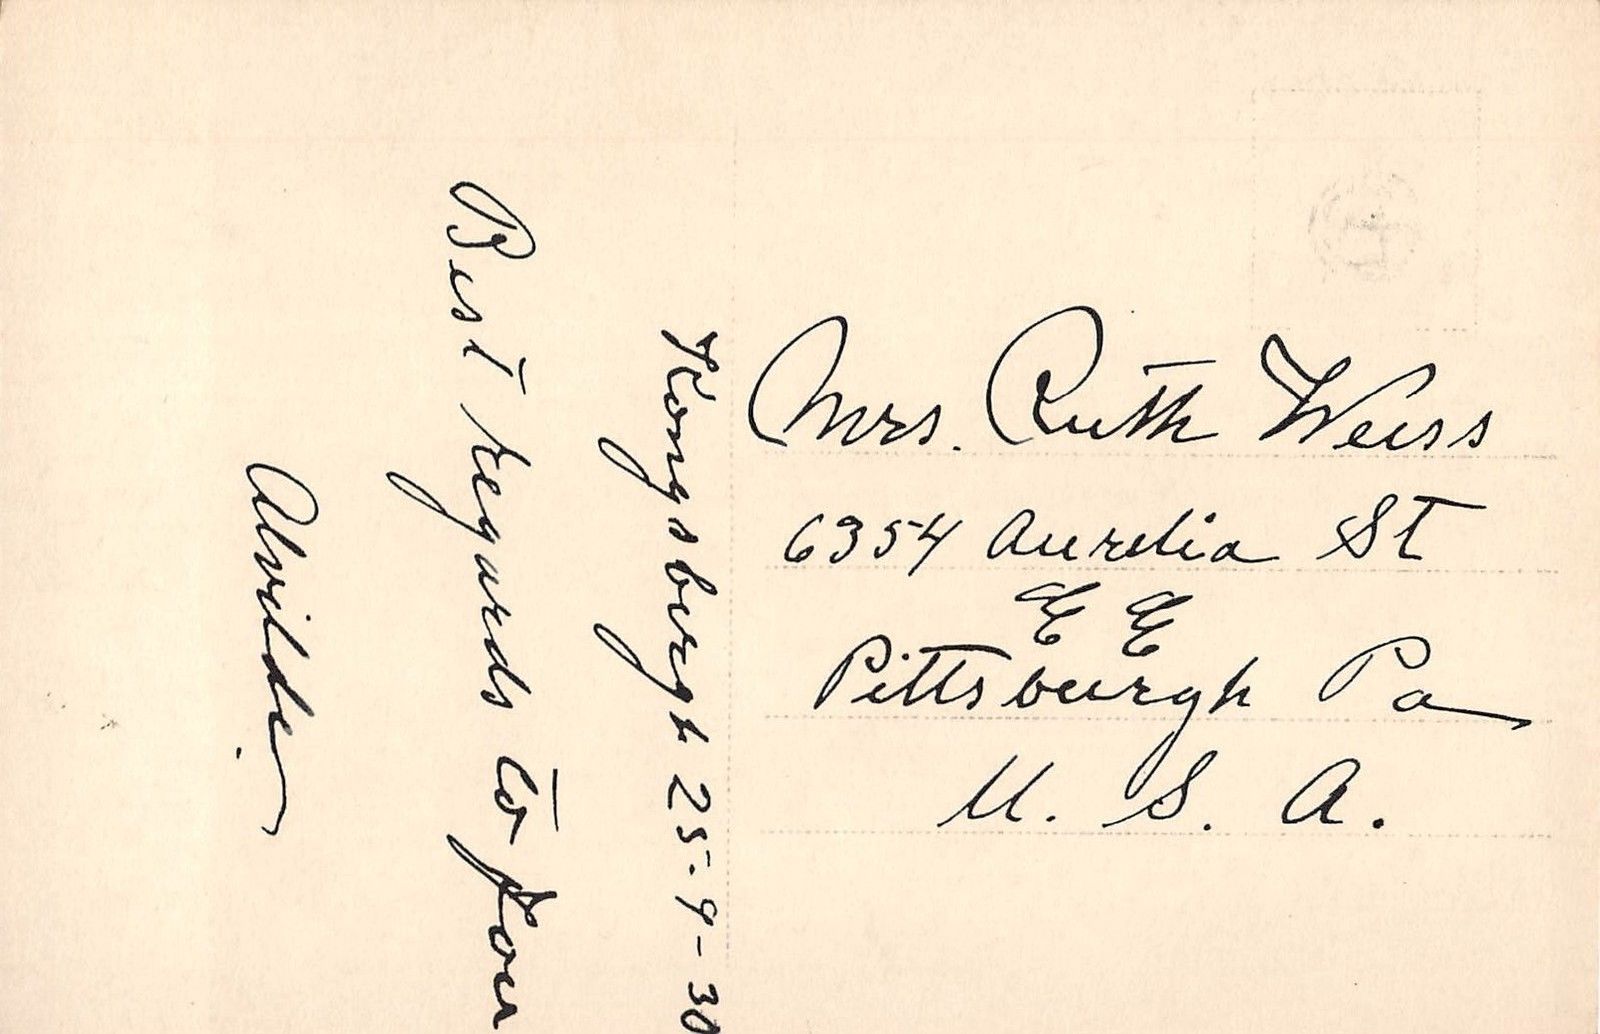 Kongsbergh 25-9-30
Best regards to you
Alvilde.
Mrs. Ruth Weiss
6354 Aurelia St
E E
Pittsburgh Pa
U. S. A.